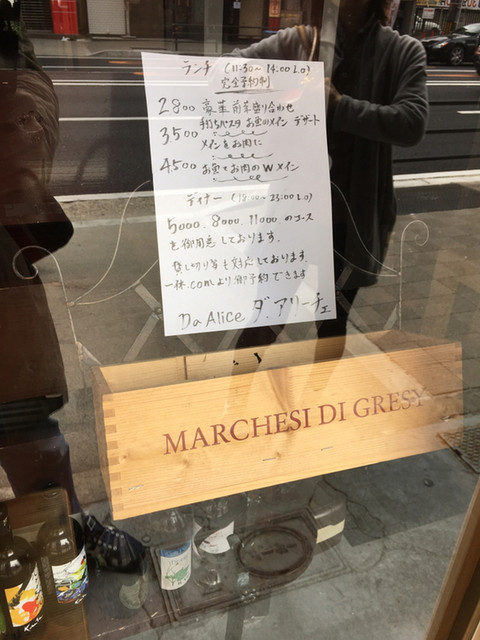 ランチ (11:30~14:00 L.O)
完全予約制
2800 豪華前菜盛り合わせ
手打ちパスタ お魚のメイン デザート
3,500
メインをお肉に
4500 お魚とお肉のWメイン
ディナー (18:00~23:00 L.O)
5000, 8000, 11000 のコース
を御用意しております.
貸し切り等も対応しております.
一休.comより御予約できます
Da Alice ダ.アリーチェ
MARCHESI DI GRESY